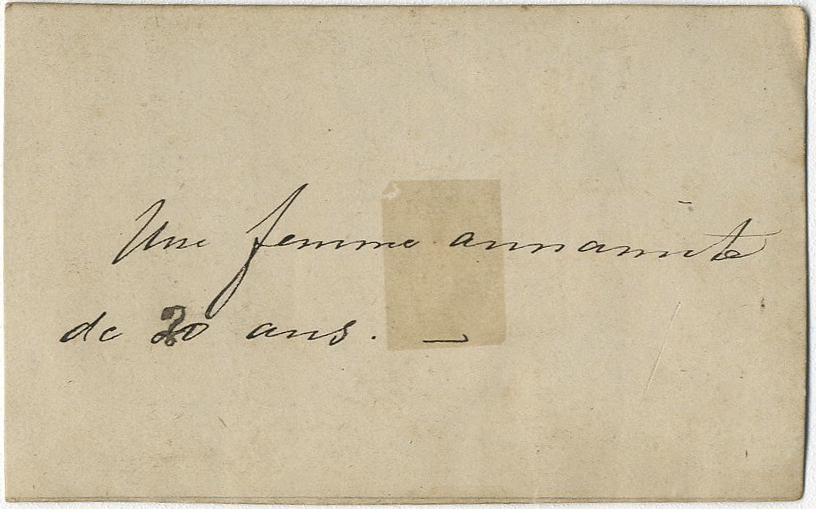 Une femme annamite
de 20 ans. _